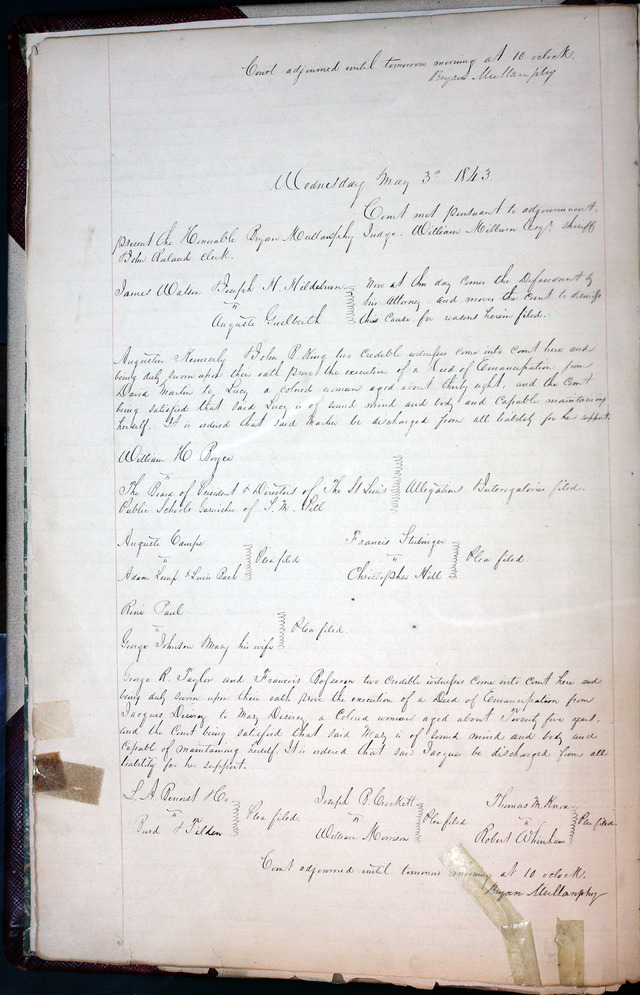 8
Court adjourned until tomorrow morning at 10 oclock.
Bryan Mullanphy
Wednesday May 3d 1843.
Court met pursuant to adjournment,
present the Honorable Bryan Mullanphy Judge. William Milburn Esqr. Sheriff
John Ruland Clerk.
James Watson & Joseph H. Hildeburn
vs
Auguste Guelberth
Now at this day comes the Defendant by
his Attorney and moves the Court to dismiss
this Cause for reasons herein filed.
Augustin Kennerly & John P. King two credible witnesses come into Court here and
being duly sworn upon their oath prove the execution of a Deed of Emancipation from
David Martin to Lucy a colored woman aged about thirty eight, and the Court
being satisfied that said Lucy is of sound mind and body and Capable maintaining
herself. It is ordered that said Martin be discharged from all liability for her support.
William H Royce
vs
The Board of President & Directors of The St Louis
Public Schools Garnishee of S. M. Sill
Allegations & Interogatories filed.
Auguste Campe
vs
Adam Lemp & Louis Bach
Plea filed
Francis Stubinger
vs
Christopher Hill
Plea filed.
René Paul
vs
George Johnson Mary his wife
Plea filed.
George R. Taylor and Francois two Credible witnesses Come into Court here and
being duly sworn upon their oath prove the execution of a Deed of Emancipation from
Jacques to Mary a Colored woman aged about Twenty five years.
and the Court being satisfied that said Mary is of sound mind and body and
Capable of maintaining herself. It is ordered that said Jacques be discharged from all
liability for her support.
L. A. Benoist & Co
vs
Bard & Tilden
Plea filed.
Joseph B. Crockett
vs
William Morrison
Plea filed
Thomas M. Knox
vs
Robert Whinham
Plea filed.
Court adjourned until tomorrow morning at 10 oclock.
Bryan Mullanphy